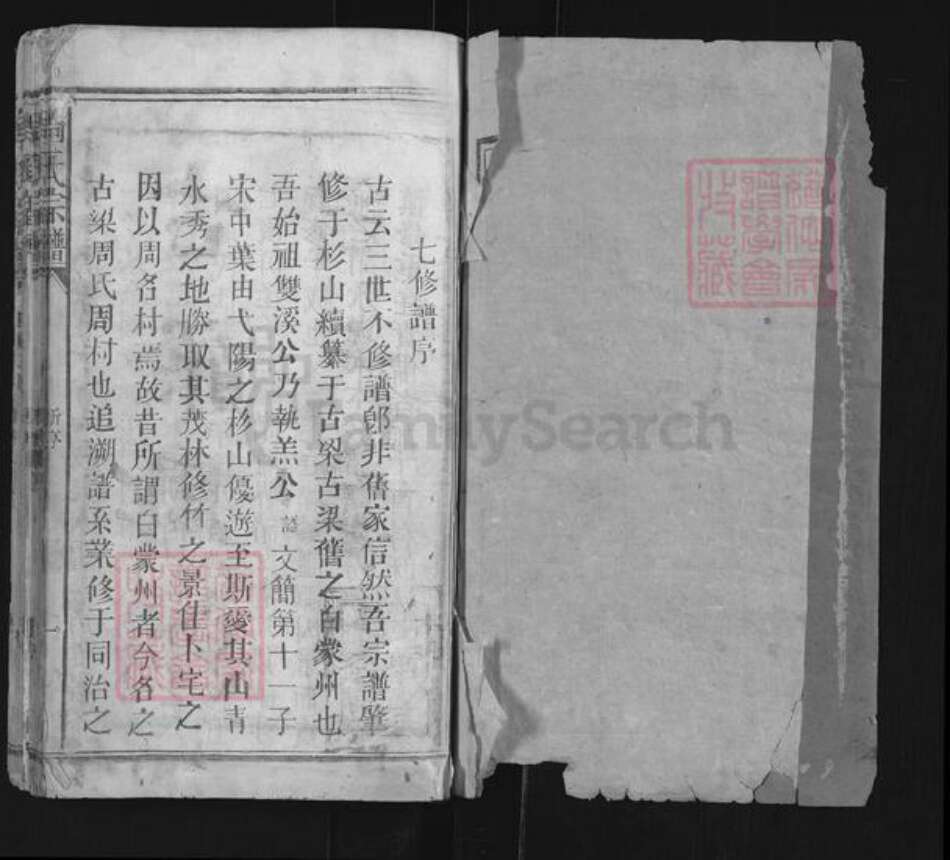 七修譜序
古云三世不修譜卽非舊家信然吾宗譜肇
修于杉山續纂于古梁古梁舊之白蒙州也
吾始祖雙溪公乃執羔公諱文簡第十一子
宋中葉由弋陽之杉山優遊至斯愛其山青
水秀之地勝取其茂林修竹之景佳卜宅之
因以周名村焉故昔所謂白蒙州者今名之
古梁周氏周村也追溯譜系業修于同治之
氏宗譜
新序
一
FamilySearch